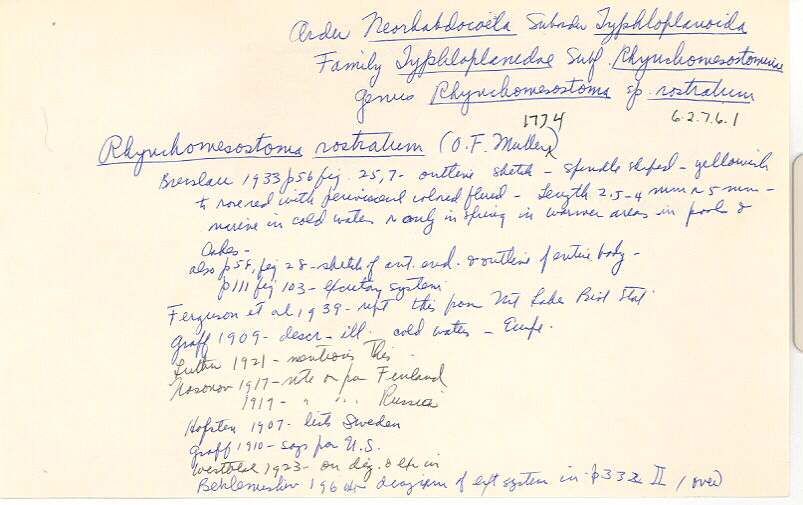 Order Neorhabdocoela Suborder Typhloplanoida
Family Typhloplanedae Subf. Rhynchomesostominae
genus Rhynchomesostoma sp. rostratum
1774 6.2.7.6.1
Rhynchomesostoma rostratum (O.F. Muller)
Breslau 1933 p56 fig. 25,7- outline sketch - spindle shaped - yellowish
to rosered with perivisceral colored fluid - Length 2.5-4 mm or 5 mm -
marine in cold water or only in spring in warmer areas in pools &
lakes -
also p58, fig 28 - sketch of ant. end. & outline of entire body -
p111 fig 103 - excretory system.
Ferguson et al 1939 - rept this from Mt Lake Biol Stat
Graff 1909 - descr - ill. cold water - Europe.
Luther 1921 - mentions this.
Nasonov 1917 - note on for Finland
1919 - " " " Russia
Hofsten 1907 - lists Sweden
Graff 1910 - says for U.S.
Westblad 1923 - on dig. & ex in
Beklemeshev 1964 - diagram of ext system in p332 II (over)